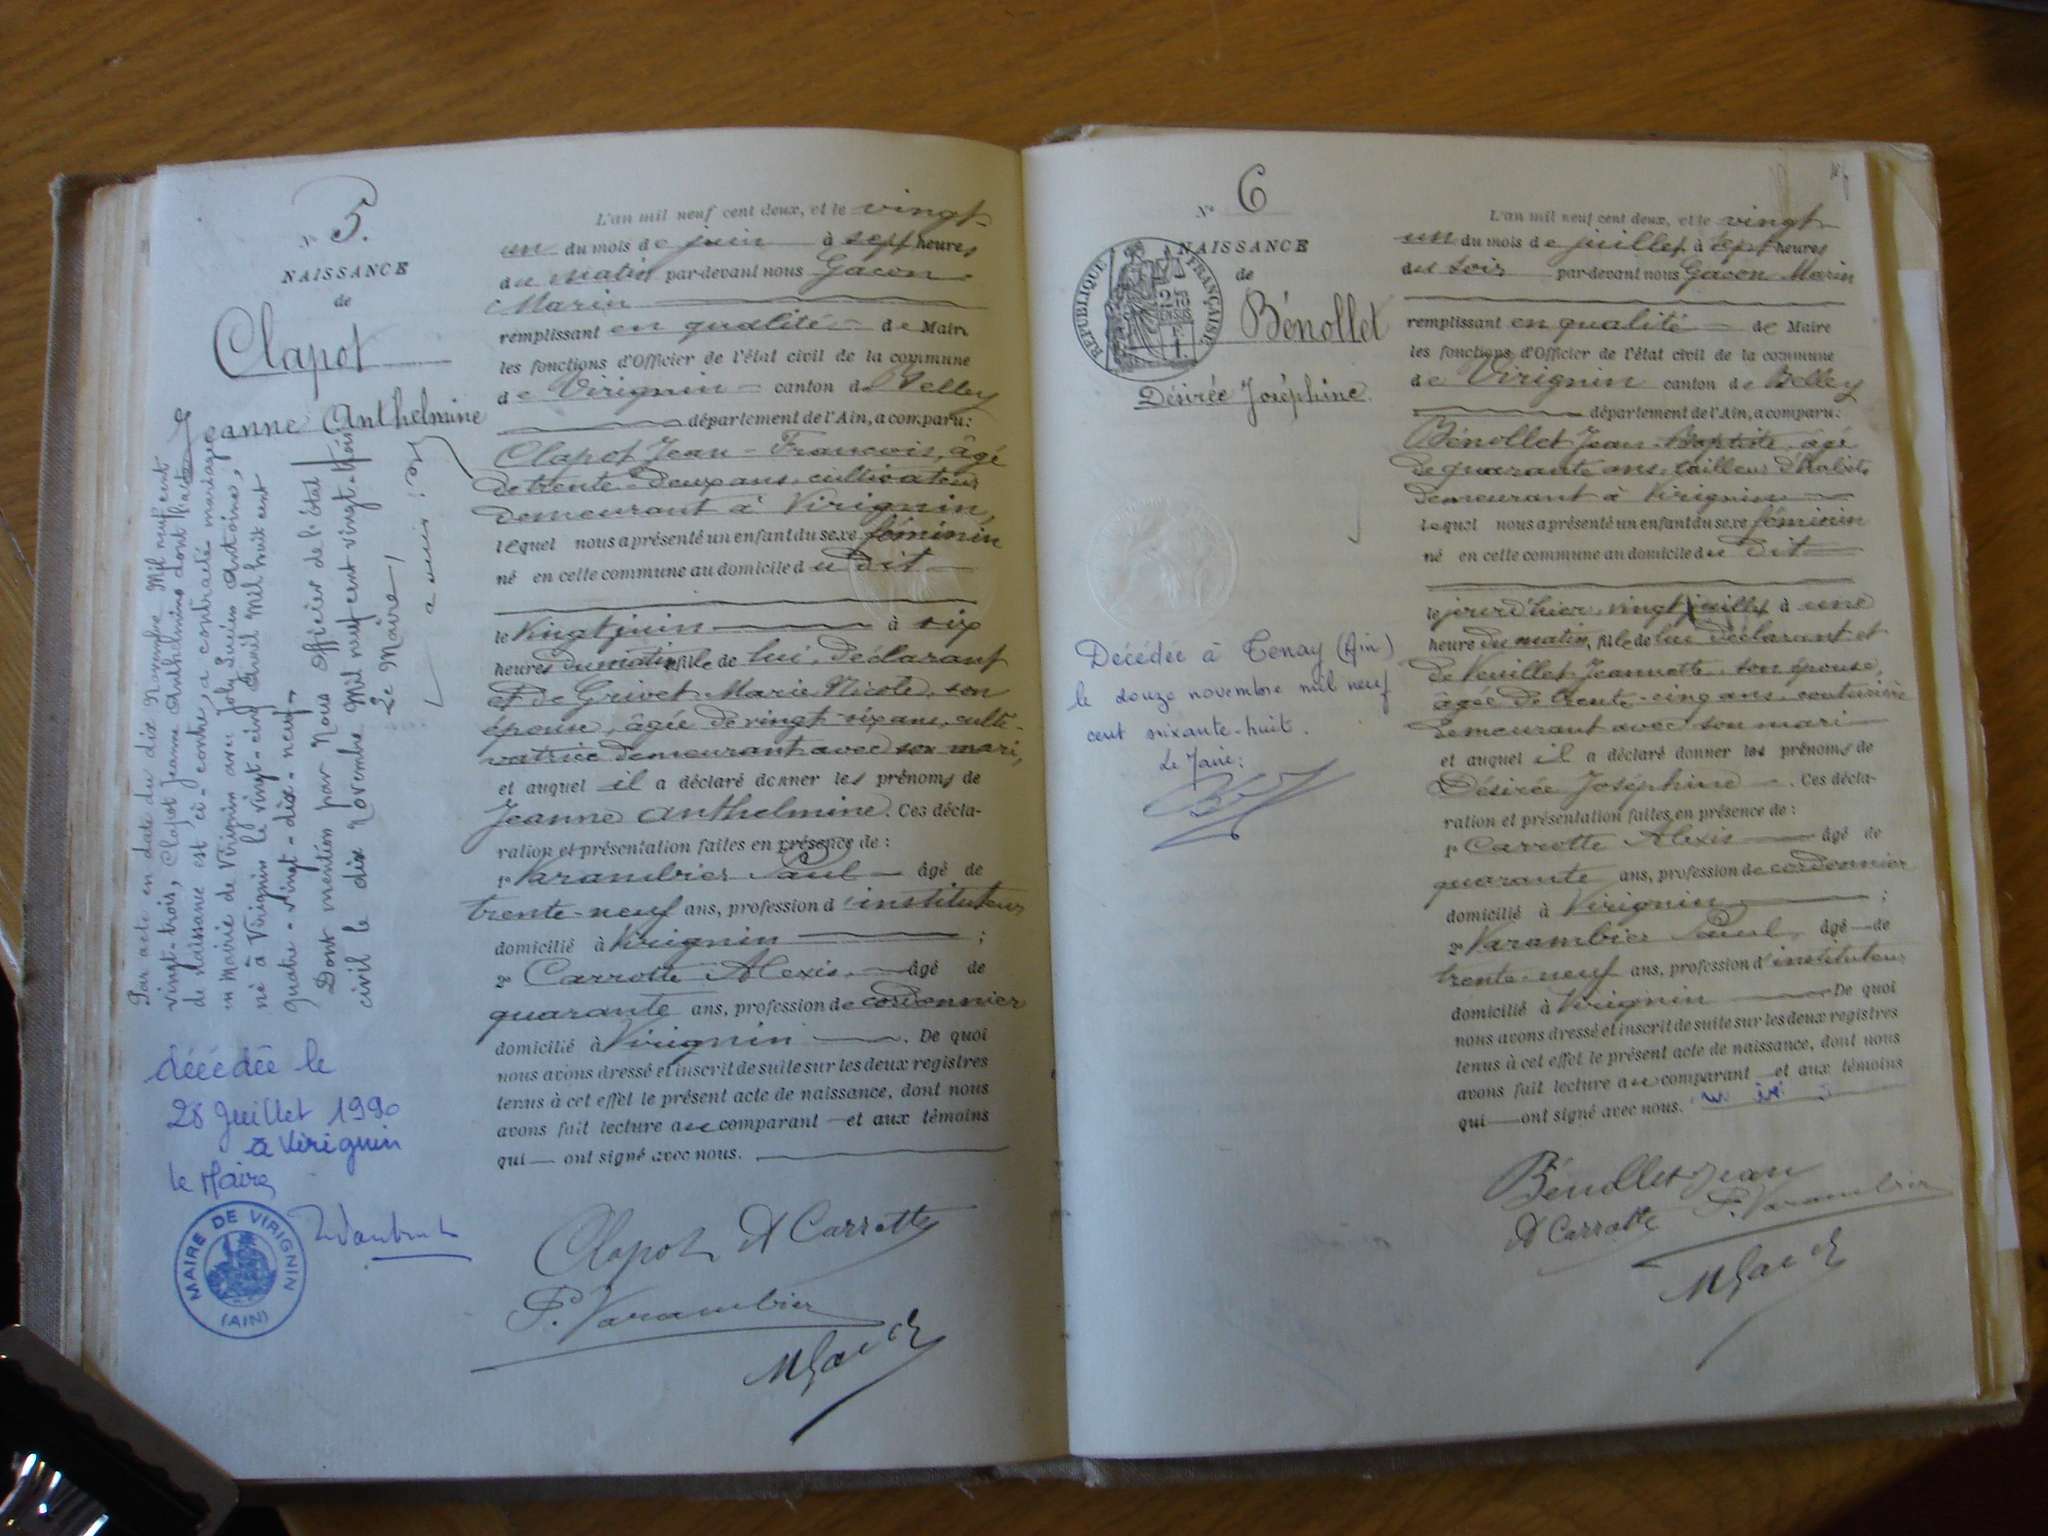 N° 5.
NAISSANCE
de
Clapot
Jeanne Anthelmine
Par acte en date du dix Novembre Mil neuf cent
vingt-trois, Clapot Jeanne Anthelmine dont l'acte
de naissance est ci-contre, a contracté mariage
en mairie de Virignin avec Joly Lucien Antoine,
né à Virignin le vingt-cinq Avril Mil huit cent
quatre-vingt-dix-neuf
Dont mention par Nous Officier de l'état
civil le dix Novembre Mil neuf cent vingt-trois
Le Maire,
décédée le
28 Juillet 1990
à Virignin
le Maire
MAIRE DE VIRIGNIN
(AIN)
L'an mil neuf cent deux, et le vingt
un du mois de juin à sept heures
du matin par-devant nous Gacon
Marin
remplissant en qualité de Maire
les fonctions d'Officier de l'état civil de la commune
de Virignin canton de Belley
département de l'Ain, a comparu:
Clapot Jean-François, âgé
de trente-deux ans, cultivateur
demeurant à Virignin,
lequel nous a présenté un enfant du sexe féminin
né en cette commune au domicile du dit
le vingt juin à six
heures du matin, fille de lui, déclarant
et de Grivet Marie Nicole, son
épouse, âgée de vingt-six ans, culti-
vatrice demeurant avec son mari,
et auquel il a déclaré donner les prénoms de
Jeanne Anthelmine. Ces décla-
ration et présentation faites en présence de :
1° Varambier Paul âgé de
trente-neuf ans, profession d'instituteur
domicilié à Virignin ;
2° Carrotte Alexis, âgé de
quarante ans, profession de cordonnier
domicilié à Virignin. De quoi
nous avons dressé et inscrit de suite sur les deux registres
tenus à cet effet le présent acte de naissance, dont nous
avons fait lecture au comparant et aux témoins
qui ont signé avec nous.
Clapot A Carrotte
P. Varambier
N° 6
NAISSANCE
de
RÉPUBLIQUE FRANÇAISE
Bénollet
Désirée Joséphine.
Décédée à Tenay (Ain)
le douze novembre mil neuf
cent soixante-huit.
Le Maire:
L'an mil neuf cent deux, et le vingt
un du mois de juillet à sept heures
du soir par-devant nous Gacon Marin
remplissant en qualité de Maire
les fonctions d'Officier de l'état civil de la commune
de Virignin canton de Belley
département de l'Ain, a comparu:
Bénollet Jean-Baptiste âgé
de quarante ans, tailleur d'habits
demeurant à Virignin
lequel nous a présenté un enfant du sexe féminin
né en cette commune au domicile du dit
le jour d'hier, vingt juillet à une
heure du matin, fille de lui déclarant et
de Veuillet Jeannette, son épouse,
âgée de trente-cinq ans, couturière
demeurant avec son mari
et auquel il a déclaré donner les prénoms de
Désirée Joséphine. Ces décla-
ration et présentation faites en présence de :
1° Carrotte Alexis âgé de
quarante ans, profession de cordonnier
domicilié à Virignin ;
2° Varambier Paul, âgé de
trente-neuf ans, profession d'instituteur
domicilié à Virignin De quoi
nous avons dressé et inscrit de suite sur les deux registres
tenus à cet effet le présent acte de naissance, dont nous
avons fait lecture au comparant et aux témoins
qui ont signé avec nous.
Bénollet Jean
A Carrotte P. Varambier